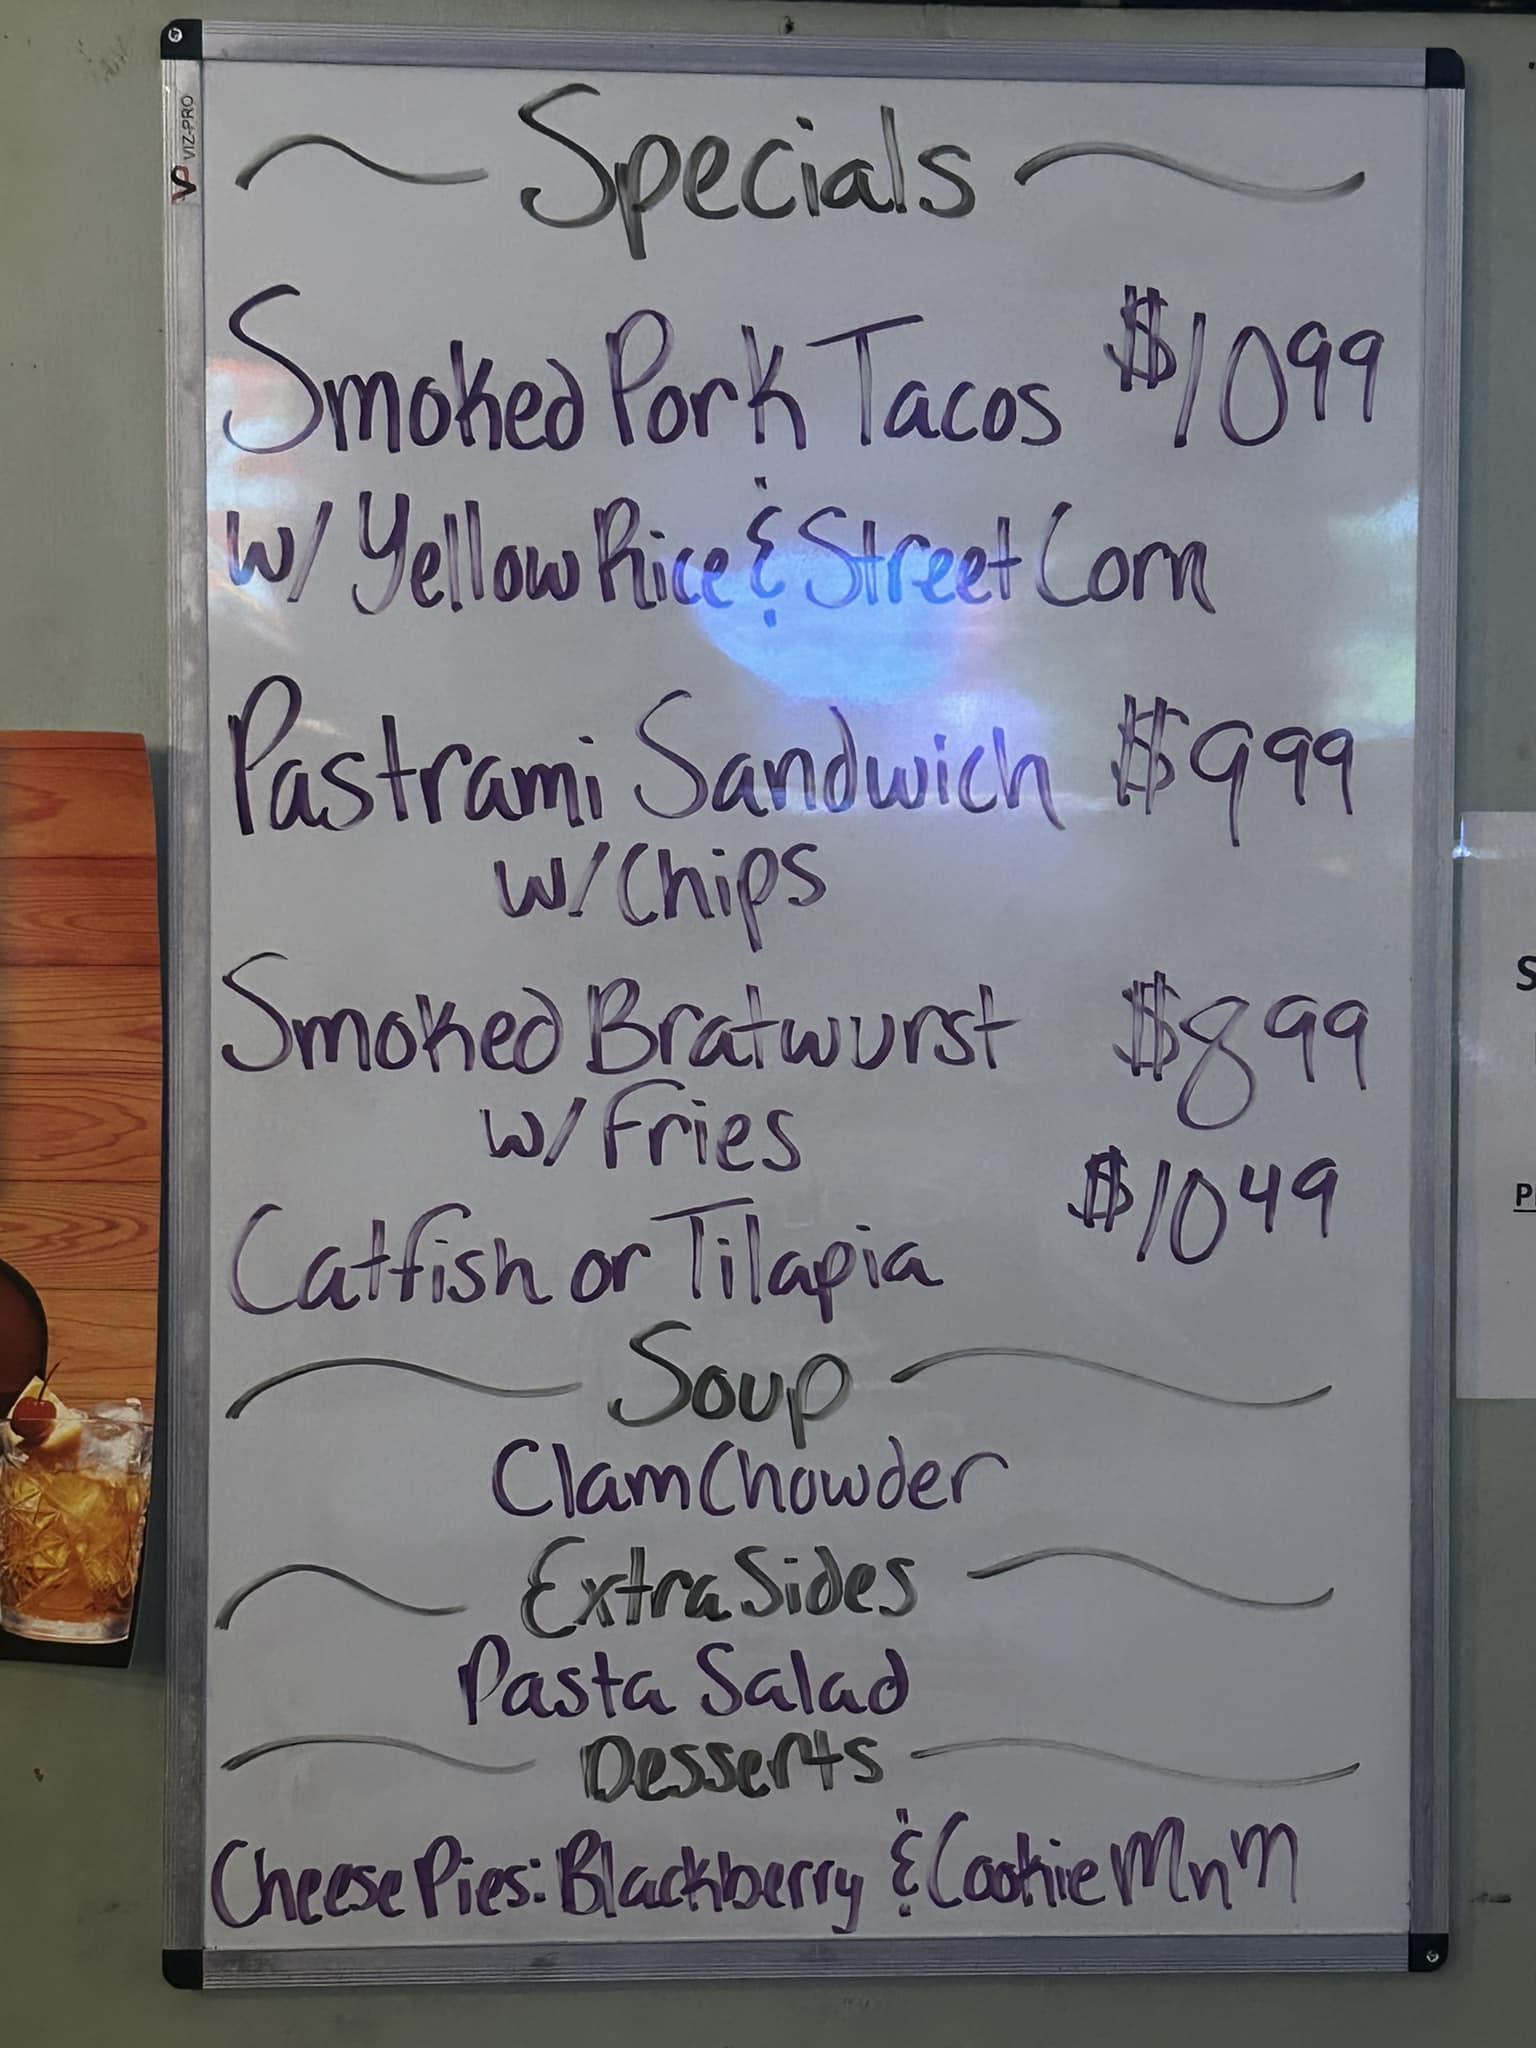 VIZ-PRO
Specials
Smoked Pork Tacos $10 99
w/ Yellow Rice & Street Corn
Pastrami Sandwich $9 99
w/ Chips
Smoked Bratwurst $8 99
w/ Fries
Catfish or Tilapia $10 49
Soup
Clam Chowder
Extra Sides
Pasta Salad
Desserts
Cheese Pies: Blackberry & Cookie MnM